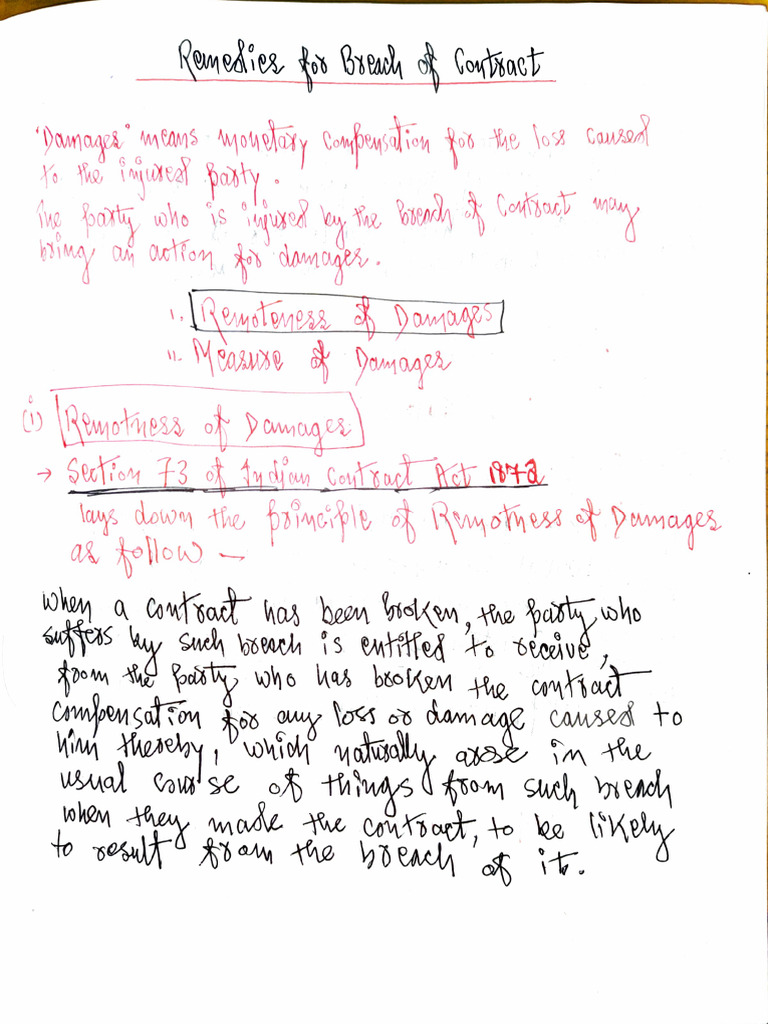 Remedies for Breach of Contract
"Damages" means monetary compensation for the loss caused
to the injured party.
The party who is injured by the breach of contract may
bring an action for damages.
i. Remoteness of Damages
ii. Measure of Damages
(i) Remotness of Damages
→ Section 73 of Indian Contract Act 1872
lays down the principle of Remotness of Damages
as follow —
When a contract has been broken, the party who
suffers by such breach is entitled to receive,
from the party who has broken the contract
compensation for any loss or damage caused to
him thereby, which naturally arose in the
usual course of things from such breach
when they made the contract, to be likely
to result from the breach of it.